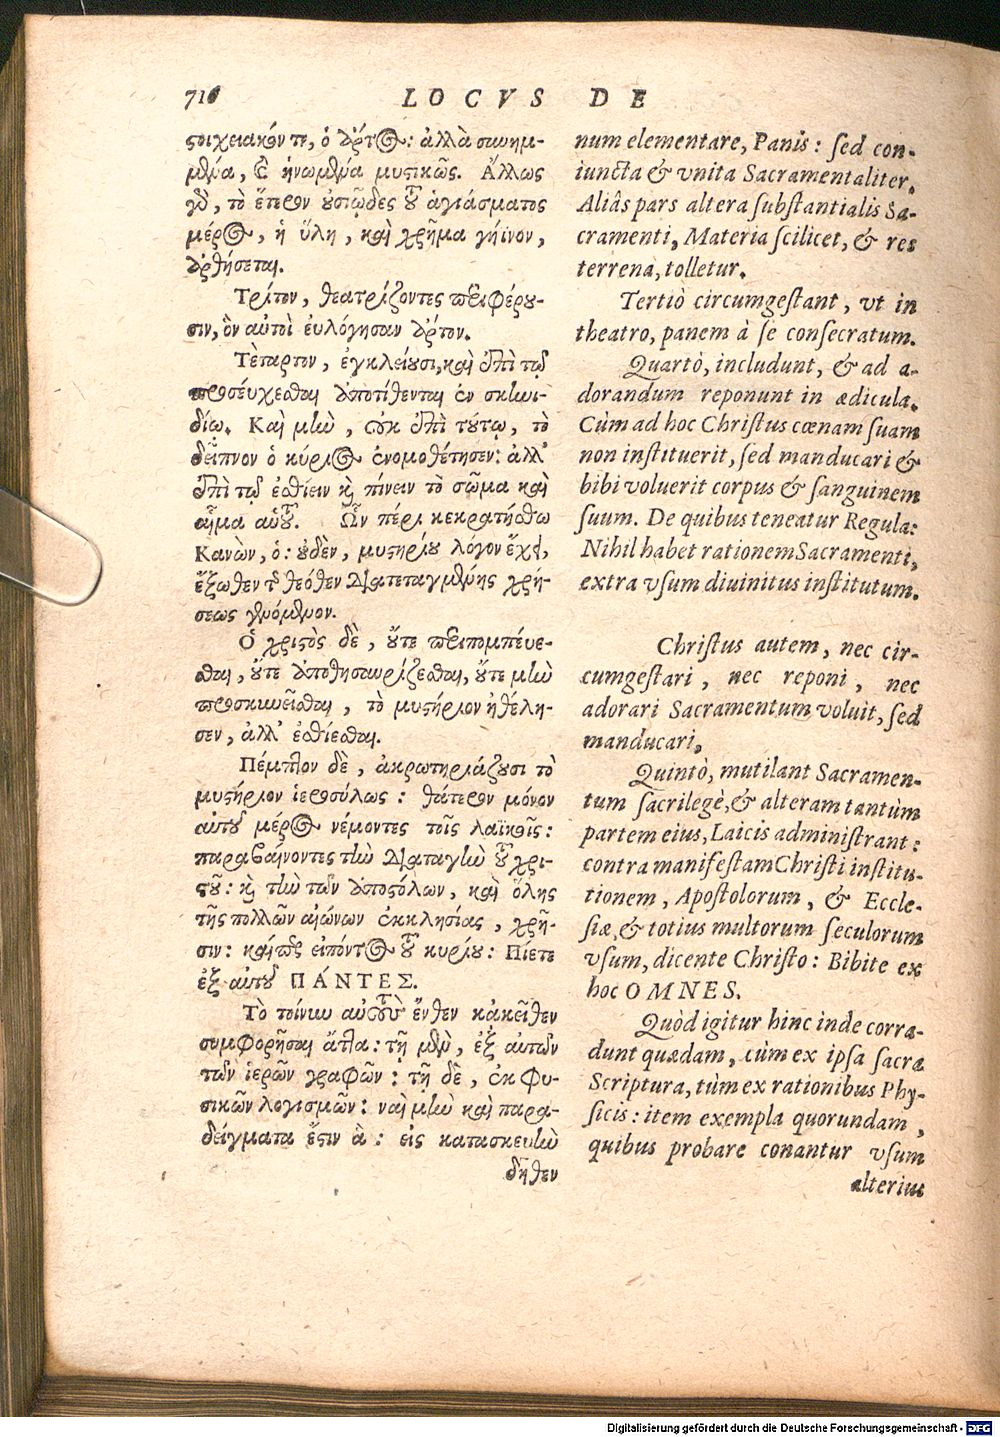 716
LOCVS DE
ςοιχειακόν τι, ὁ ἄρτος: ἀλλὰ συνημ-
μένα, καὶ ἡνωμένα μυςικῶς. Ἄλλως
γὸ, τὸ ἕτερον οὐσιῶδες τοῦ ἁγιάσματος
μέρος, ἡ ὕλη, καὶ χρῆμα γήϊνον,
ἀρθήσεται.
Τρίτον, θεατρίζοντες περιφέρου-
σιν, ὃν αὐτοὶ ἐυλόγησαν ἄρτον.
Τέταρτον, ἐγκλείουσι, καὶ ἐπὶ τῷ
προσέυχεσθαι ἀποτίθενται ἐν σκηνι-
δίῳ. Καὶ μὴν, οὐκ ἐπὶ τούτῳ, τὸ
δεῖπνον ὁ κύριος ἐνομοθέτησεν: ἀλλ'
ἐπὶ τῷ ἐσθίειν καὶ πίνειν τὸ σῶμα καὶ
αἷμα αὑτοῦ. Ὧν πέρι κεκρατήσθω
Κανὼν, ὁ: οὐδὲν, μυςηρίου λόγον ἔχει,
ἔξωθεν τῆς θεόθεν διατεταγμένης χρή-
σεως γενόμενον.
Ὁ χριςὸς δὲ, οὔτε περιπομπέυε-
σθαι, οὔτε ἀποθησαυρίζεσθαι, οὔτε μὴν
προσκυνεῖσθαι, τὸ μυςήριον ἠθέλη-
σεν, ἀλλ' ἐσθίεσθαι.
Πέμπτον δὲ, ἀκρωτηριάζουσι τὸ
μυςήριον ἱεροσύλως: θάτερον μόνον
αὐτοῦ μέρος νέμοντες τοῖς λαϊκοῖς:
παραβαίνοντες τὴν διαταγὴν τοῦ χρι-
ςοῦ: καὶ τὴν τῶν ἀποςόλων, καὶ ὅλης
τῆς πολλῶν αἰώνων ἐκκλησίας, χρῆ-
σιν: καίτοι εἰπόντος τοῦ κυρίου: Πίετε
ἐξ αὐτοῦ ΠΑ΄ΝΤΕΣ.
Τὸ τοίνυν αὐτοὺς ἔνθεν κἀκεῖθεν
συμφορῆσαι ἅττα: τῇ μὲν, ἐξ αὐτῶν
τῶν ἱερῶν γραφῶν: τῇ δὲ, ἐκ Φυ-
σικῶν λογισμῶν: ναὶ μὴν καὶ παρα-
δείγματα ἔςιν ἃ: εἰς κατασκευὴν
δῆθεν
num elementare, Panis: sed con-
iuncta & vnita Sacramentaliter.
Aliâs pars altera substantialis Sa-
cramenti, Materia scilicet, & res
terrena, tolletur.
Tertiò circumgestant, vt in
theatro, panem à se consecratum.
Quartò, includunt, & ad a-
dorandum reponunt in ædicula.
Cùm ad hoc Christus cœnam suam
non instituerit, sed manducari &
bibi voluerit corpus & sanguinem
suum. De quibus teneatur Regula:
Nihil habet rationem Sacramenti,
extra vsum diuinitus institutum.
Christus autem, nec cir-
cumgestari, nec reponi, nec
adorari Sacramentum voluit, sed
manducari.
Quintò, mutilant Sacramen-
tum sacrilegè, & alteram tantùm
partem eius, Laicis administrant:
contra manifestam Christi institu-
tionem, Apostolorum, & Eccle-
siæ, & totius multorum seculorum
vsum, dicente Christo: Bibite ex
hoc OMNES.
Quòd igitur hinc inde corra-
dunt quædam, cùm ex ipsa sacra
Scriptura, tùm ex rationibus Phy-
sicis: item exempla quorundam,
quibus probare conantur vsum
alterius
Digitalisierung gefördert durch die Deutsche Forschungsgemeinschaft - DFG